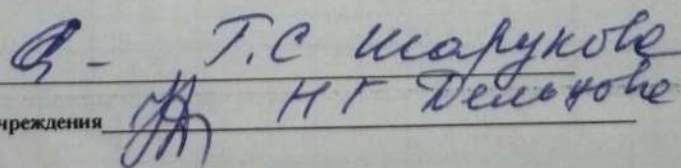 Т.С Шарукова
чреждения Н Г Дельцова